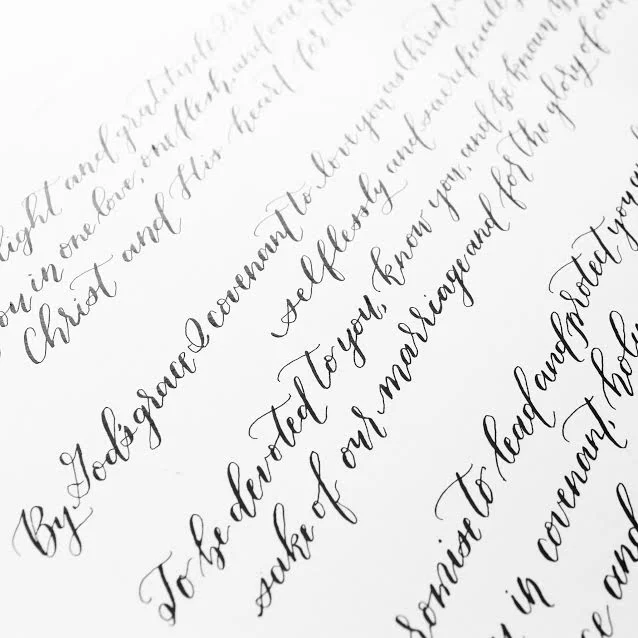 light and gratitude I
you in one love, one flesh, and one
Christ and His heart for the
By God's grace I covenant to love you as Christ
selflessly and sacrificially
To be devoted to you, know you, and be known by
sake of our marriage and for the glory of our
omise to lead and protect you
in covenant, holy
and